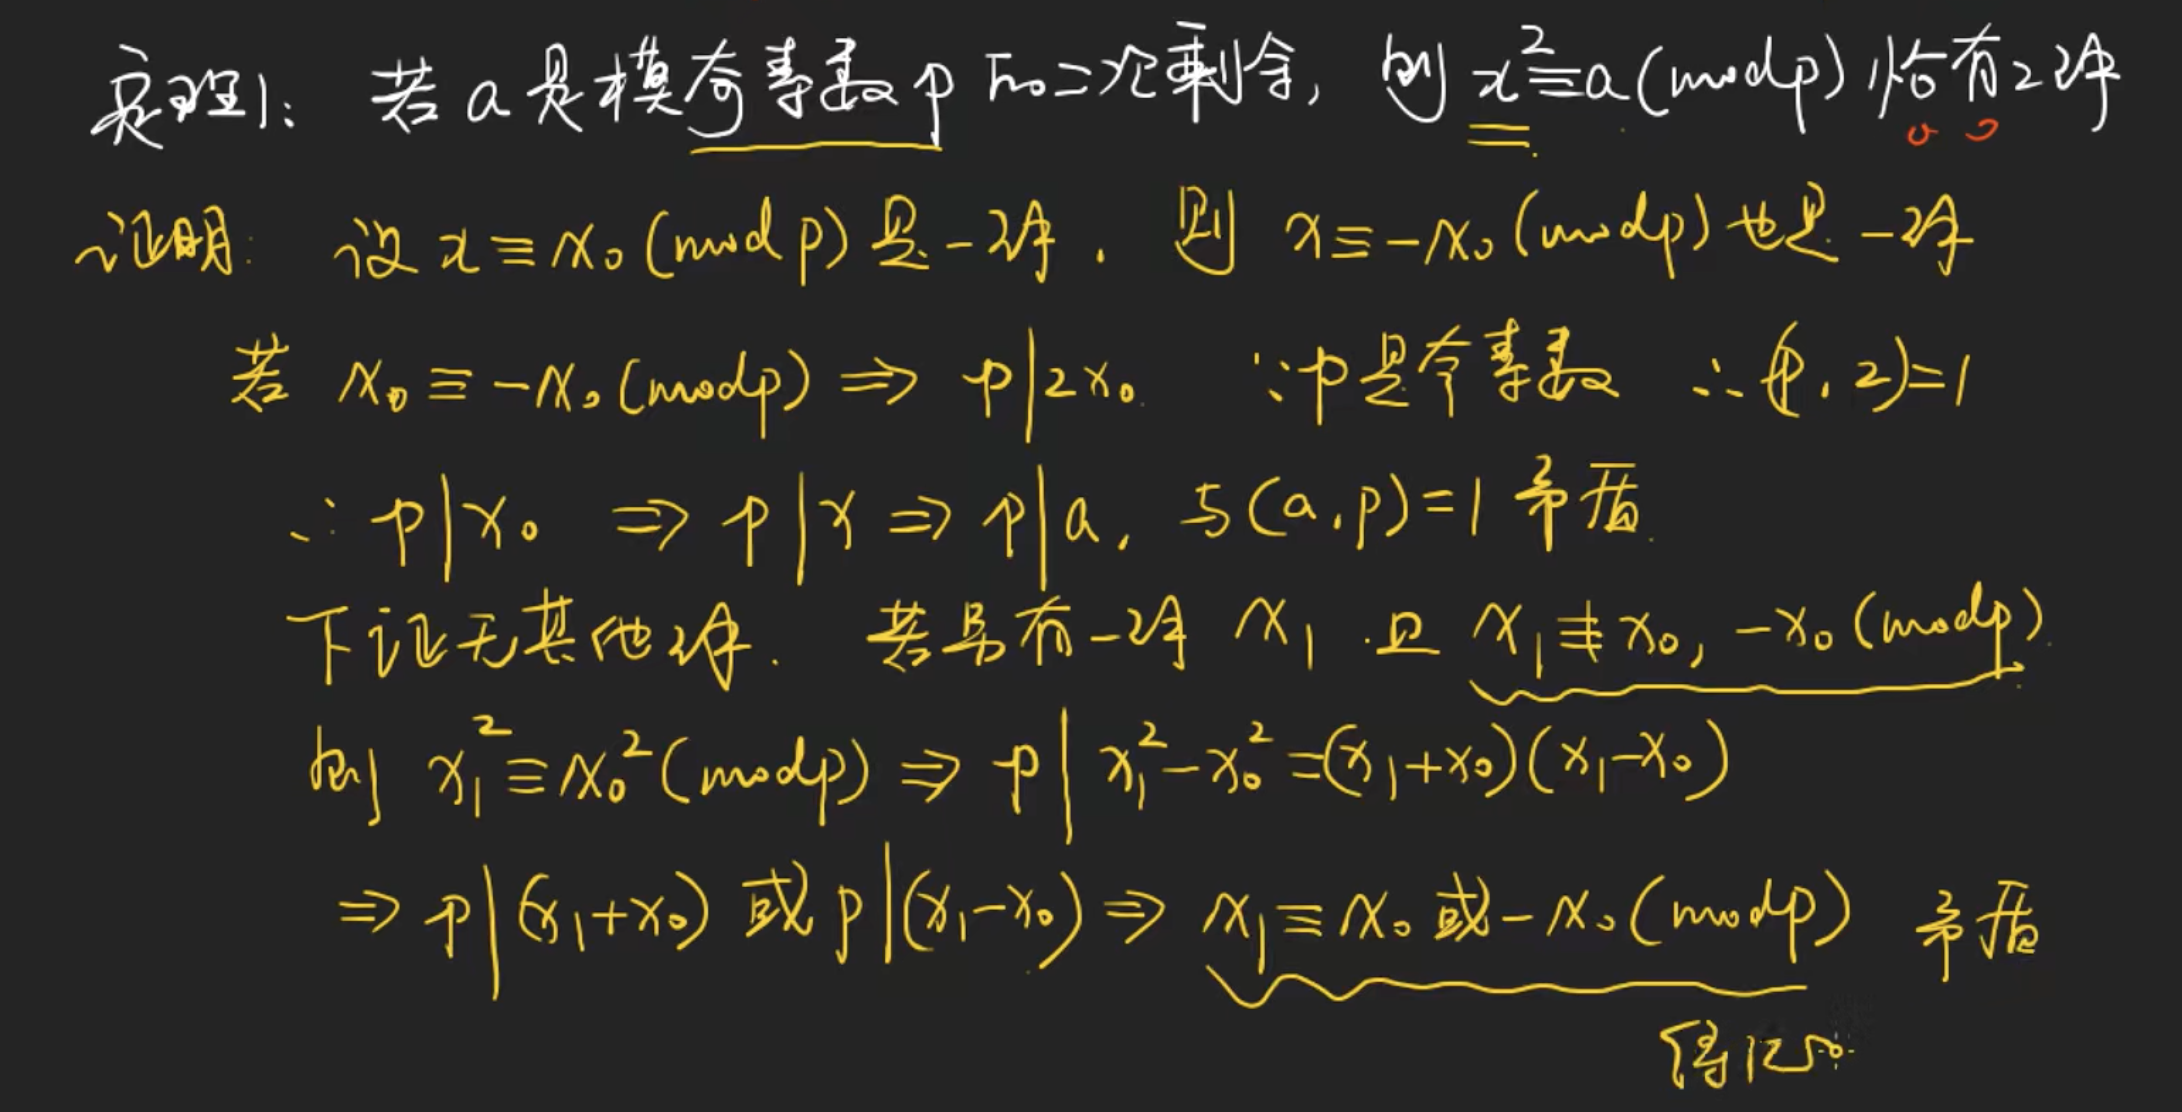 定理1: 若a是模奇素数p的二次剩余, 则x²≡a(modp)恰有2解
证明: 设x≡x₀(modp)是一解. 则 x≡-x₀(modp)也是一解
若 x₀≡-x₀(modp)⇒p|2x₀ ∵p是奇素数 ∴(p,2)=1
∴p|x₀⇒p|x⇒p|a, 与(a,p)=1矛盾.
下证无其他解. 若另有一解x₁.且x₁≢x₀,-x₀(modp).
则x₁²≡x₀²(modp)⇒p|x₁²-x₀²=(x₁+x₀)(x₁-x₀)
⇒p|(x₁+x₀)或p|(x₁-x₀)⇒x₁≡x₀或-x₀(modp) 矛盾
得证